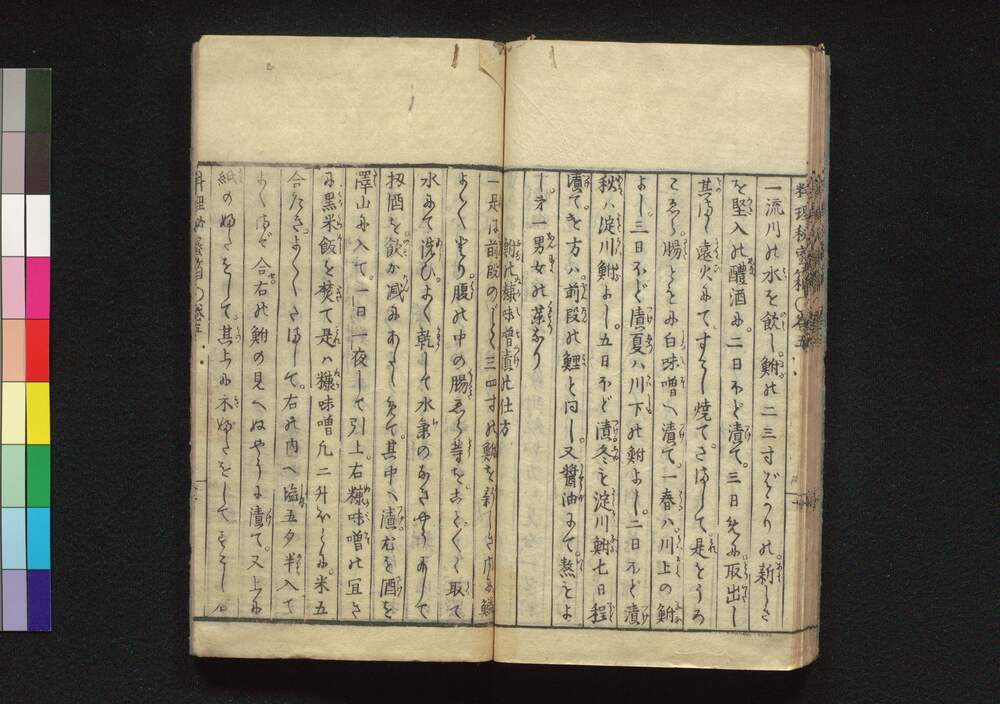 料理秘密箱〇巻五
一流川の水を飲し鮒の二三寸ばかりの新しき
を堅入の醴酒に二日ほど漬て三日めに取出し
其まゝ遠火にてすこし焼てさまして是をうろ
こゑら腸ともに白味噌へ漬て一春ハ川上の鮒
よし三日ほど漬夏ハ川下の鮒よし二日ほど漬
秋ハ淀川鮒よし五日ほど漬冬も淀川鮒七日程
漬てき方ハ前段の鯉と同し又醤油にて熬とよ
し第一男女の薬なり
鮒の糠味噌漬の仕方
一是は前段のごとく三四寸の鮒を新しき内に鱗
よくとり腹の中の腸ゑら等をことごとく取て
水にて洗ひよく乾して水気のなきやうにして
扨酒を飲か減にあたゝめて其中へ漬尤も酒を
澤山に入て一日一夜して引上右糠味噌の宜さ
に黒米飯を焚て是ハ糠味噌九二升ほとに米五
合たきよくさまして右の内へ塩五夕半入て
よくまぜ合右の鮒の見へぬやうに漬て又上に
紙のふたをして其上に木ぶたをしてすこし